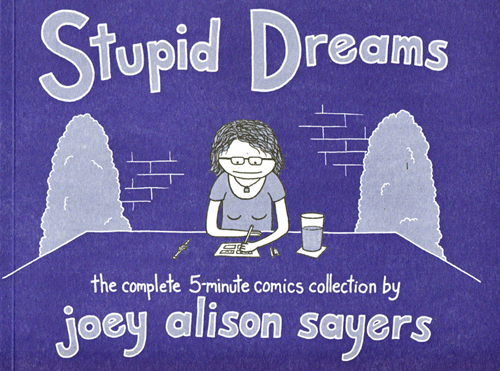 Stupid Dreams
the complete 5-minute comics collection by
joey alison sayers